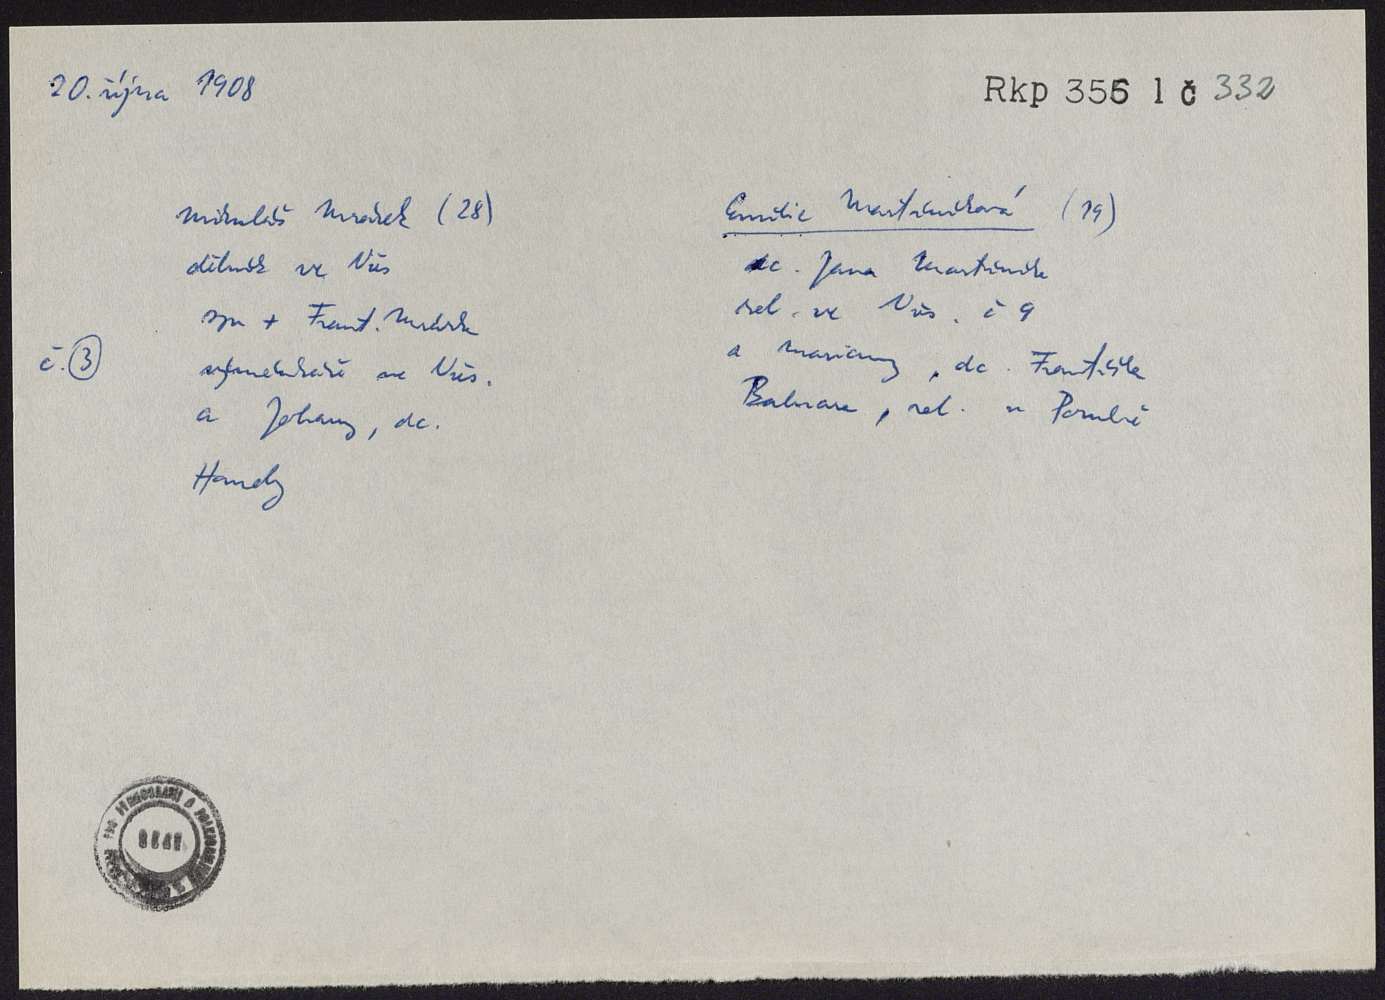 20. října 1908
Rkp 356 l č 332
Mikuláš Mrázek (28)
dělník ve Vys
syn + Frant. Mrázka
výměnkáře ve Vys.
č. 3
a Johany, dc.
Handy
Emilie Martiníková (19)
dc. Jana Martiníka
rol. ve Vys. č 9
a Mariany, dc. Františka
rol. v Porubě